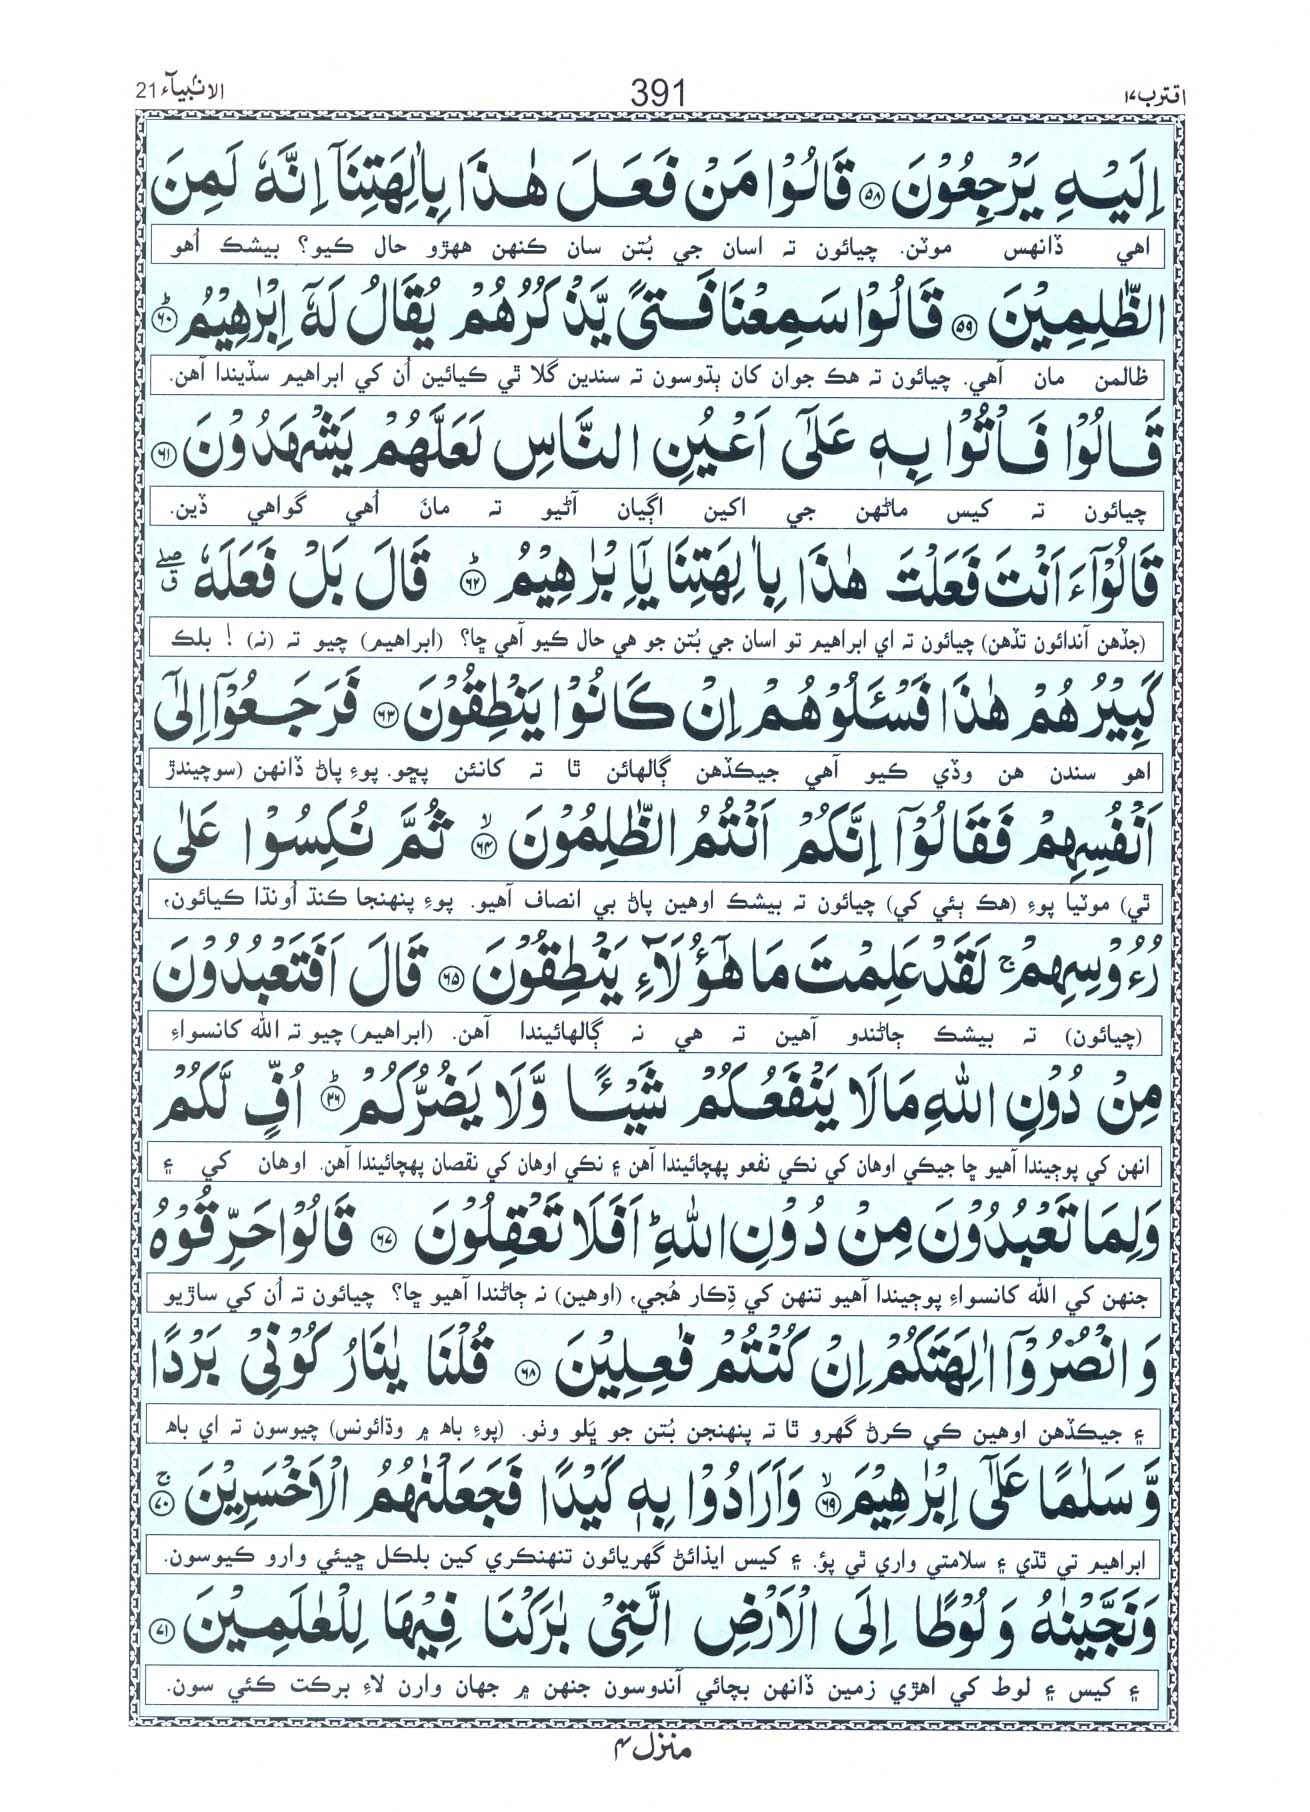 اقترب ١٧ 391 الانبیآء 21
اِلَيْهِ يَرْجِعُوْنَ ۝٥٨ قَالُوْا مَنْ فَعَلَ هٰذَا بِاٰلِهَتِنَاۤ اِنَّهٗ لَمِنَ
اهي ڏانهس موٽن. چيائون تہ اسان جي بُتن سان ڪنهن ههڙو حال ڪيو؟ بيشڪ اُهو
الظّٰلِمِيْنَ ۝٥٩ قَالُوْا سَمِعْنَا فَتًى يَّذْكُرُهُمْ يُقَالُ لَهٗۤ اِبْرٰهِيْمُ ۝٦٠ؕ
ظالمن مان آهي. چيائون تہ هڪ جوان کان ٻڌوسون تہ سندين گلا ٿي ڪيائين اُن کي ابراهيم سڏيندا آهن.
قَالُوْا فَاْتُوْا بِهٖ عَلٰۤى اَعْيُنِ النَّاسِ لَعَلَّهُمْ يَشْهَدُوْنَ ۝٦١
چيائون تہ کيس ماڻهن جي اکين اڳيان آڻيو تہ مانَ اُهي گواهي ڏين.
قَالُوْۤا ءَاَنْتَ فَعَلْتَ هٰذَا بِاٰلِهَتِنَا يٰۤاِبْرٰهِيْمُ ۝٦٢ؕ قَالَ بَلْ فَعَلَهٗ ۖق
(جڏهن آندائون تڏهن) چيائون تہ اي ابراهيم تو اسان جي بُتن جو هي حال ڪيو آهي ڇا؟ (ابراهيم) چيو تہ (نہ) ! بلڪ
كَبِيْرُهُمْ هٰذَا فَسْـَٔلُوْهُمْ اِنْ كَانُوْا يَنْطِقُوْنَ ۝٦٣ فَرَجَعُوْۤا اِلٰۤى
اهو سندن هن وڏي ڪيو آهي جيڪڏهن ڳالهائن ٿا تہ کانئن پڇو. پوءِ پاڻ ڏانهن (سوچيندڙ
اَنْفُسِهِمْ فَقَالُوْۤا اِنَّكُمْ اَنْتُمُ الظّٰلِمُوْنَ ۝٦٤ۙ ثُمَّ نُكِسُوْا عَلٰى
ٿي) موٽيا پوءِ (هڪ ٻئي کي) چيائون تہ بيشڪ اوهين پاڻ بي انصاف آهيو. پوءِ پنهنجا ڪنڌ اُونڌا ڪيائون،
رُءُوْسِهِمْ ۚ لَقَدْ عَلِمْتَ مَا هٰۤؤُلَآءِ يَنْطِقُوْنَ ۝٦٥ قَالَ اَفَتَعْبُدُوْنَ
(چيائون) تہ بيشڪ ڄاڻندو آهين تہ هي نہ ڳالهائيندا آهن. (ابراهيم) چيو تہ الله کانسواءِ
مِنْ دُوْنِ اللّٰهِ مَا لَا يَنْفَعُكُمْ شَيْـًٔا وَّلَا يَضُرُّكُمْ ۝٦٦ؕ اُفٍّ لَّكُمْ
انهن کي پوڄيندا آهيو ڇا جيڪي اوهان کي نڪي نفعو پهچائيندا آهن ۽ نڪي اوهان کي نقصان پهچائيندا آهن. اوهان کي ۽
وَلِمَا تَعْبُدُوْنَ مِنْ دُوْنِ اللّٰهِ ؕ اَفَلَا تَعْقِلُوْنَ ۝٦٧ قَالُوْا حَرِّقُوْهُ
جنهن کي الله کانسواءِ پوڄيندا آهيو تنهن کي ڌِڪار هُجي، (اوهين) نہ ڄاڻندا آهيو ڇا؟ چيائون تہ اُن کي ساڙيو
وَانْصُرُوْۤا اٰلِهَتَكُمْ اِنْ كُنْتُمْ فٰعِلِيْنَ ۝٦٨ قُلْنَا يٰنَارُ كُوْنِيْ بَرْدًا
۽ جيڪڏهن اوهين ڪي ڪرڻ گهرو ٿا تہ پنهنجن بُتن جو ڀَلو وٺو. (پوءِ باهہ ۾ وڌائونس) چيوسون تہ اي باهہ
وَّسَلٰمًا عَلٰۤى اِبْرٰهِيْمَ ۝٦٩ۙ وَاَرَادُوْا بِهٖ كَيْدًا فَجَعَلْنٰهُمُ الْاَخْسَرِيْنَ ۝٧٠ۚ
ابراهيم تي ٿڌي ۽ سلامتي واري ٿي پؤ. ۽ کيس ايذائڻ گهريائون تنهنڪري کين بلڪل ڇيئي وارو ڪيوسون.
وَنَجَّيْنٰهُ وَلُوْطًا اِلَى الْاَرْضِ الَّتِيْ بٰرَكْنَا فِيْهَا لِلْعٰلَمِيْنَ ۝٧١
۽ کيس ۽ لوط کي اهڙي زمين ڏانهن بچائي آندوسون جنهن ۾ جهان وارن لاءِ برڪت ڪئي سون.
منزل ۴